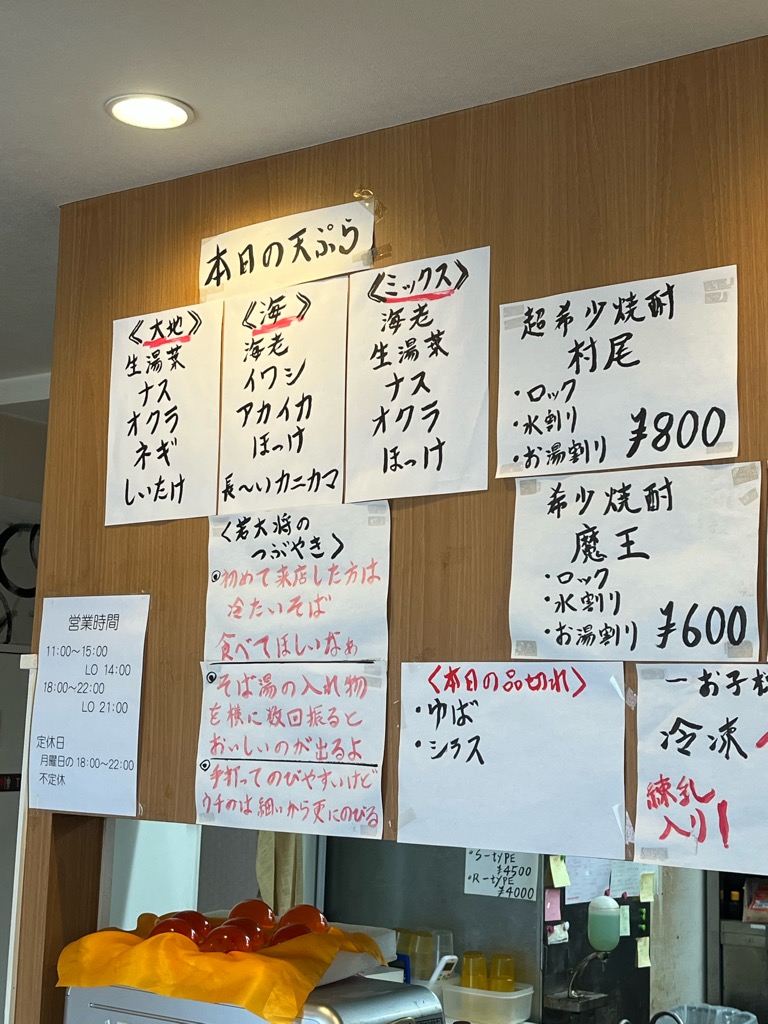 本日の天ぷら
《大地》
生湯葉
ナス
オクラ
ネギ
しいたけ
《海》
海老
イワシ
アカイカ
ほっけ
長〜いカニカマ
《ミックス》
海老
生湯葉
ナス
オクラ
ほっけ
超希少焼酎
村尾
・ロック
・水割り
・お湯割り ¥800
希少焼酎
魔王
・ロック
・水割り
・お湯割り ¥600
〈若大将の
つぶやき〉
◎初めて来店した方は
冷たいそば
食べてほしいなぁ
◎そば湯の入れ物
を横に数回振ると
おいしいのが出るよ
◎手打ってのびやすいけど
ウチのは細いから更にのびる
営業時間
11:00〜15:00
LO 14:00
18:00〜22:00
LO 21:00
定休日
月曜日の18:00〜22:00
不定休
〈本日の品切れ〉
・ゆば
・シラス
一お子
冷凍
練乳
入り!
・S-tYPE
¥4500
・R-tYPE
¥4000